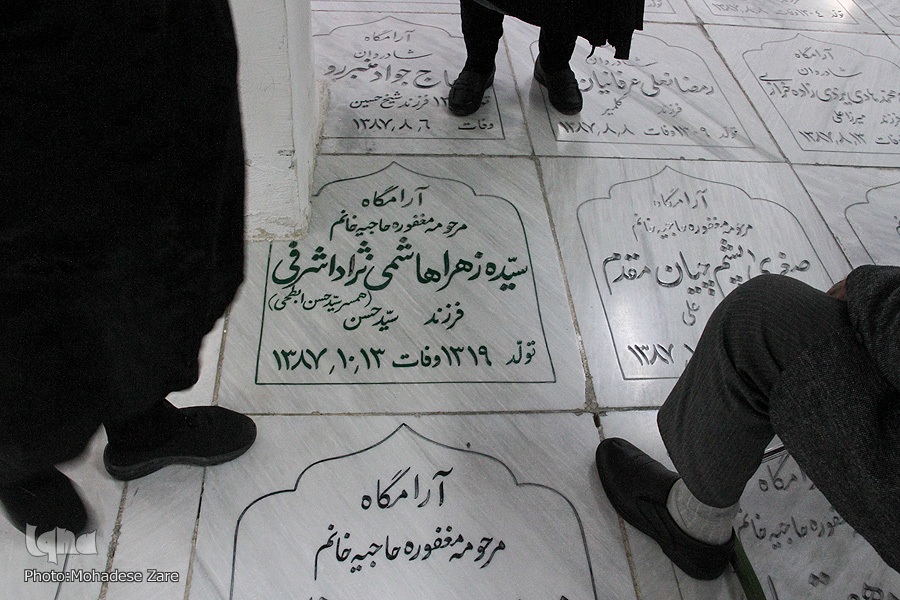 ۱۳۰۴ وفات
آرامگاه
شادروان
حاج جواد منبررو
فرزند شیخ حسین
وفات ۱۳۸۷٫۸٫۶
شادروان
رمضانعلی عرفانیان
فرزند
تولد ۱۳۰۹ وفات ۱۳۸۷٫۸٫۸
آرامگاه
شادروان
محمدهادی ایزدی زاده
فرزند میرزاعلی
۱۳۸۷٫۸٫۱۳
آرامگاه
مرحومه مغفوره حاجیه خانم
سیّده زهرا هاشمی نژاد اشرفی
(همسر سیّد حسن ابطحی)
فرزند سیّد حسن
تولّد ۱۳۱۹ وفات ۱۳۸۷٫۱۰٫۱۳
آرامگاه
مرحومه مغفوره حاجیه خانم
صغری ابریشم چیان مقدم
علی
۱۳۸۷
آرامگاه
مرحومه مغفوره حاجیه خانم
آرامگاه
مرحومه مغفوره حاجیه خانم
iqna
Photo:Mohadese Zare